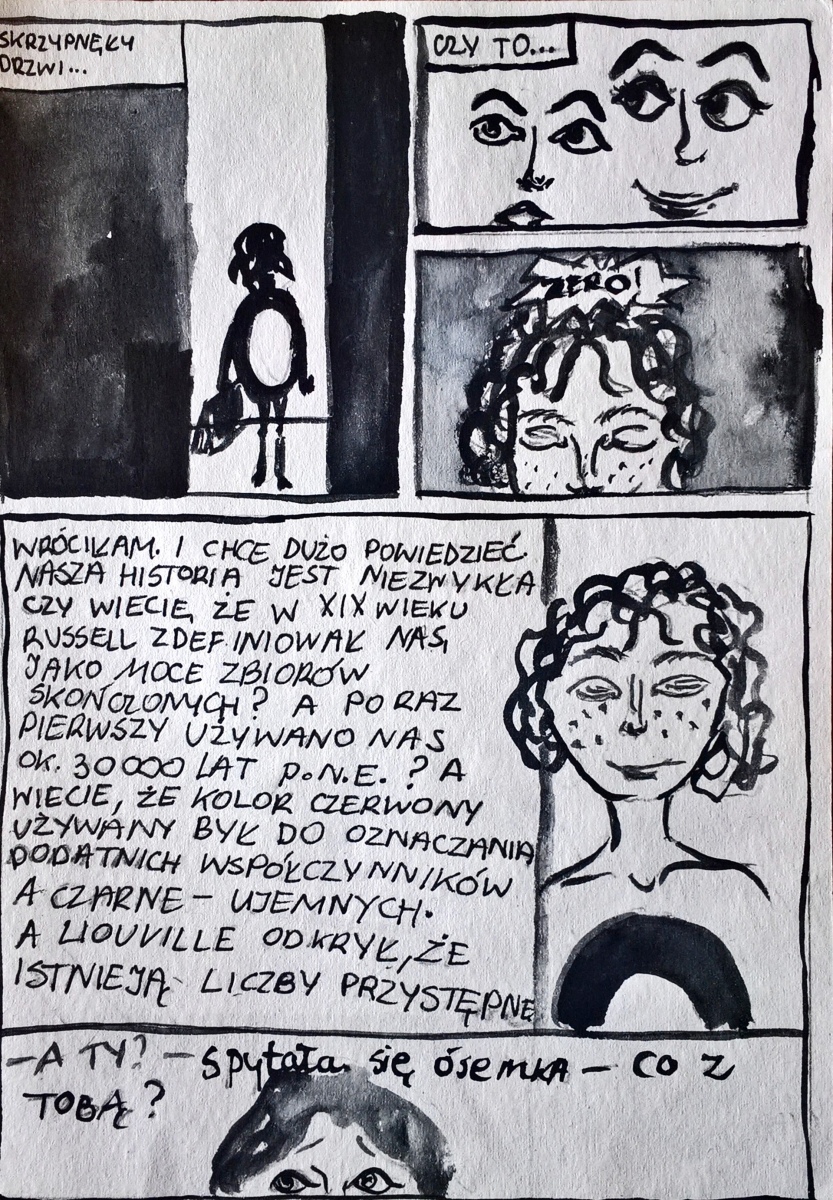 SKRZYPNĘŁY
DRZWI...
CZY TO...
ZERO!
WRÓCIŁAM. I CHCĘ DUŻO POWIEDZIEĆ.
NASZA HISTORIA JEST NIEZWYKŁA
CZY WIECIE, ŻE W XIX WIEKU
RUSSELL ZDEFINIOWAŁ NAS,
JAKO MOCE ZBIORÓW
SKOŃCZONYCH? A PO RAZ
PIERWSZY UŻYWANO NAS
OK. 30000 LAT P.N.E.? A
WIECIE, ŻE KOLOR CZERWONY
UŻYWANY BYŁ DO OZNACZANIA
DODATNICH WSPÓŁCZYNNIKÓW
A CZARNE - UJEMNYCH.
A LIOUVILLE ODKRYŁ, ŻE
ISTNIEJĄ LICZBY PRZYSTĘPNE
-A TY? - Spytała się ósemka - co z
TOBĄ?